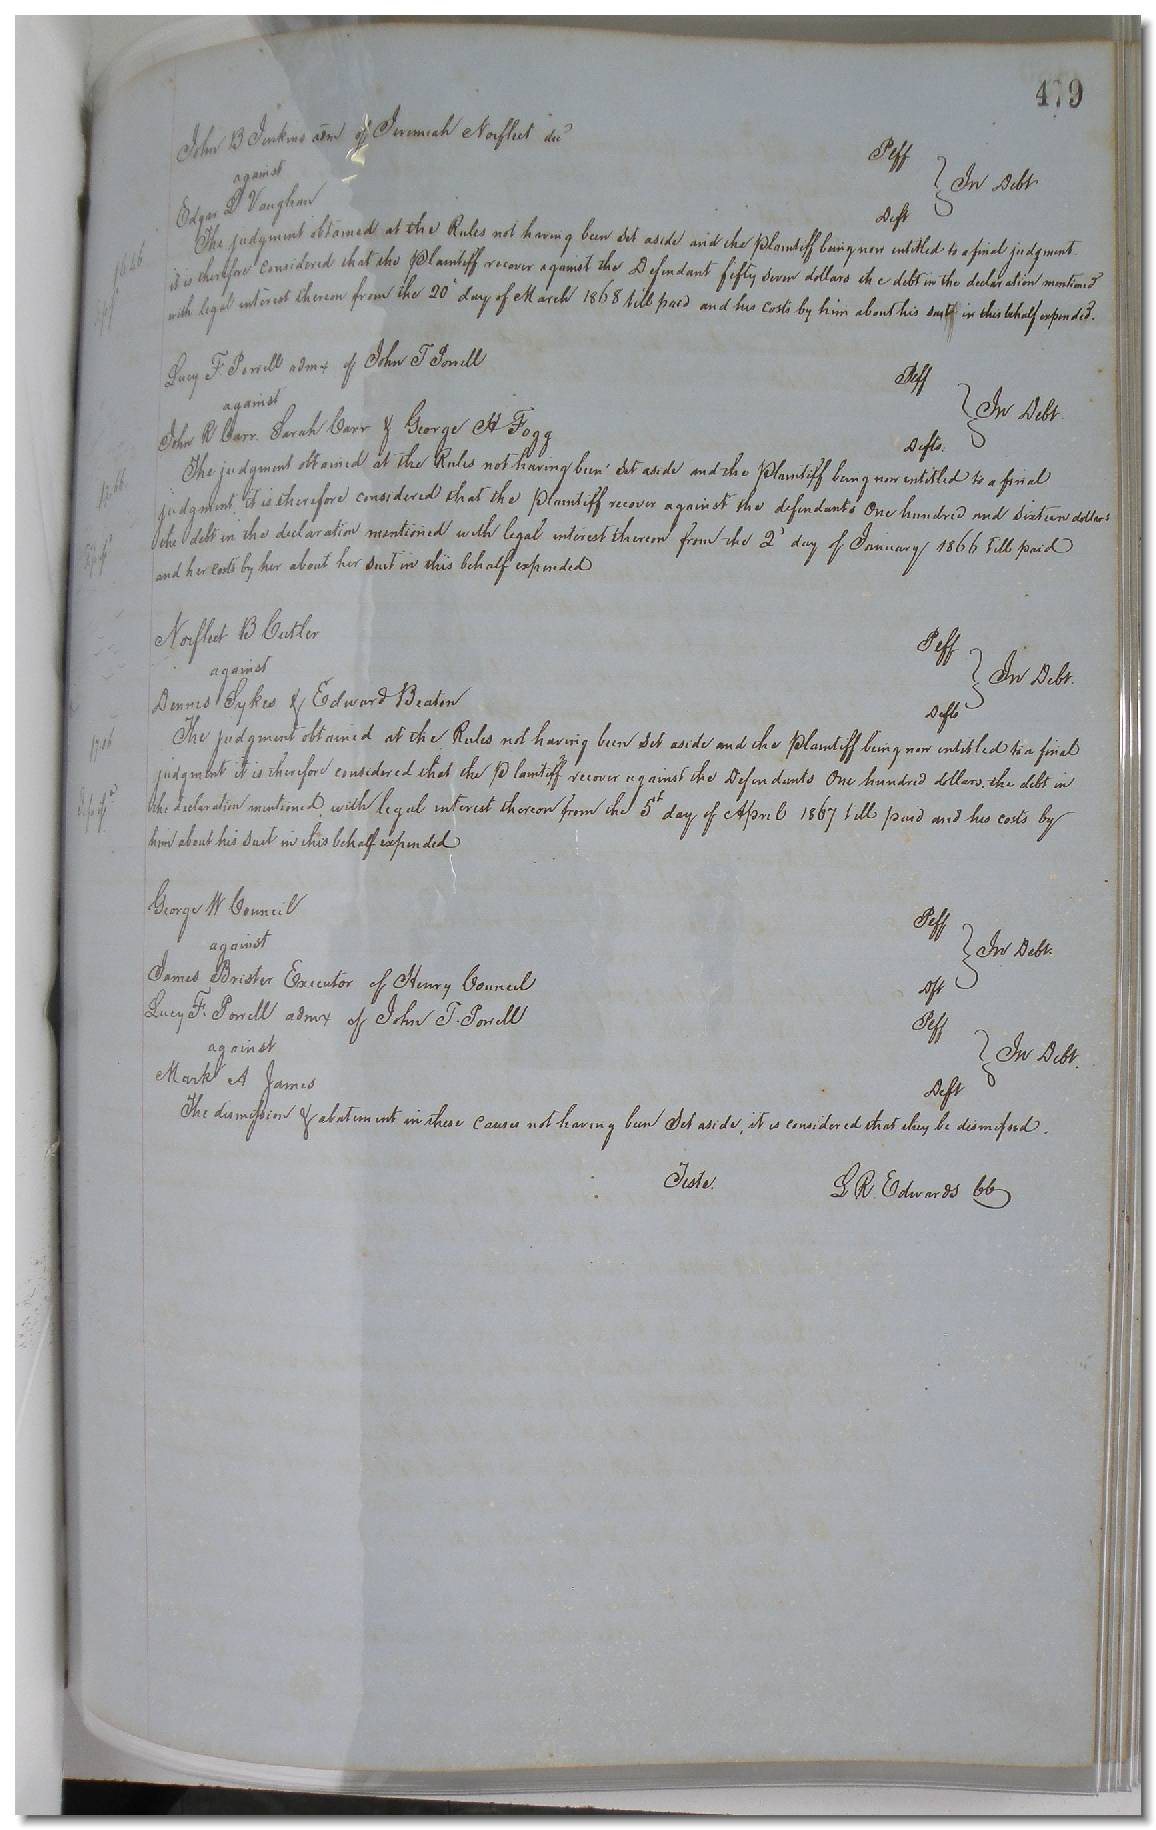 479
John B Jenkins adm of Jeremiah Norfleet decd Plff
against In Debt
Edgar D Vaughan Deft
The judgment obtained at the Rules not having been set aside and the Plaintiff being now entitled to a final judgment
it is therefore considered that the Plaintiff recover against the Defendant fifty seven dollars the debt in the declaration mentioned
with legal interest thereon from the 20' day of March 1868 till paid and his costs by him about his suit in this behalf expended.
Lucy F. Powell admx of John T Powell Plff
against In Debt.
John R Carr. Sarah Carr & George H Fogg Defts.
The judgment obtained at the Rules not having been set aside and the Plaintiff being now entitled to a final
judgment, it is therefore considered that the Plaintiff recover against the defendants One hundred and sixteen dollars
the debt in the declaration mentioned with legal interest thereon from the 2' day of January 1866 till paid
and her costs by her about her suit in this behalf expended
Norfleet B Cutler Plff
against In Debt.
Dennis Sykes & Edward Beaton Defts
The judgment obtained at the Rules not having been set aside and the Plaintiff being now entitled to a final
judgment it is therefore considered that the Plaintiff recover against the Defendants One hundred dollars. the debt in
the declaration mentioned, with legal interest thereon from the 5th day of April 1867 till paid and his costs by
him about his suit in this behalf expended
George W Council Plff
against In Debt.
James Brister Executor of Henry Council Dft
Lucy F. Powell admx of John T. Powell Plff
against In Debt.
Mark A James Deft
The dismission & abatement in these causes not having been set aside, it is considered that they be dismissed.
Teste. L R. Edwards CC